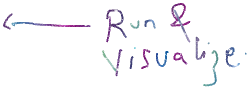 Run &
Visualize.